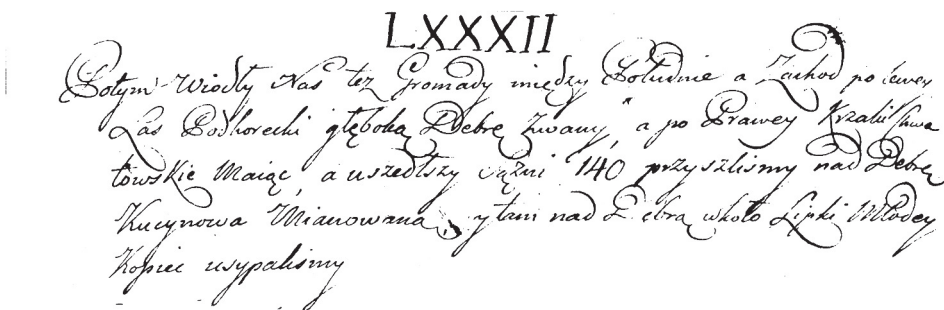 LXXXII
Potym Wiodły Nas też Gromady między Południe a Zachod po lewey
Las Podhorecki głęboką Debrę Zwany, a po Prawey Krzaki Chwa
towskie Maiąc, a uszedłszy sążni 140 przyszlismy nad Debrę
Kucynowa Mianowana, y tam nad Debrą wkoło Lipki Młodey
Kopiec usypalismy